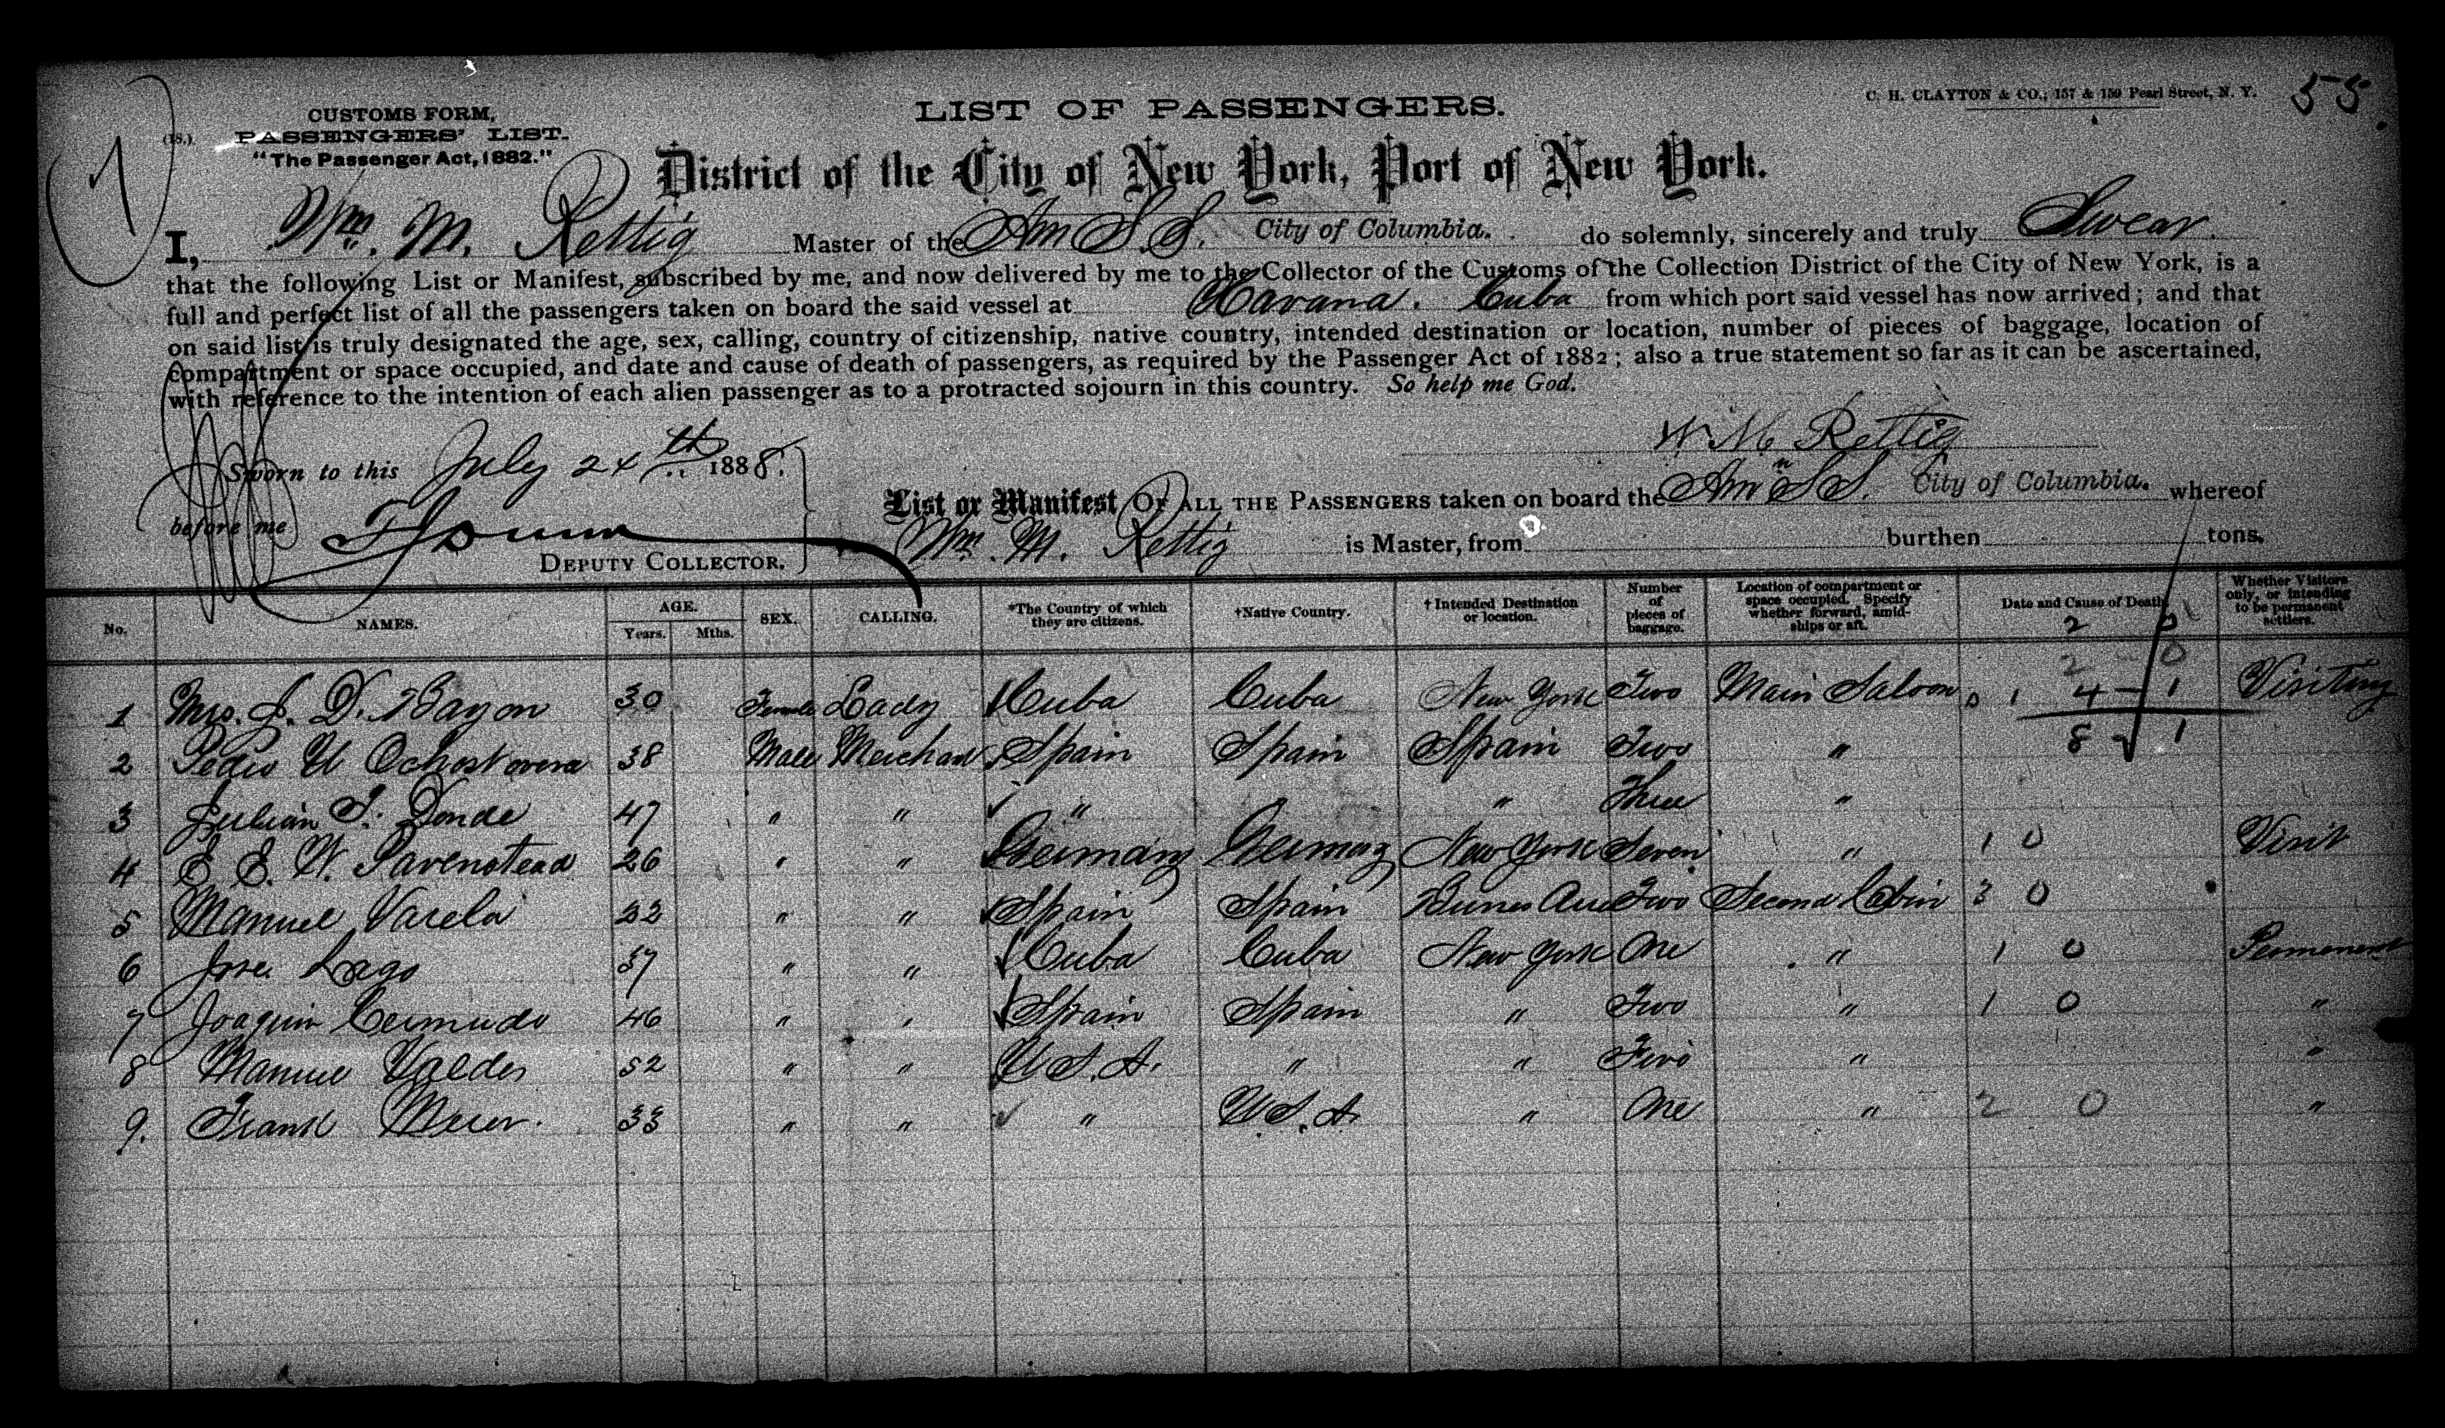 55.
1
CUSTOMS FORM,
(18.) PASSENGERS' LIST.
"The Passenger Act, 1882."
LIST OF PASSENGERS.
C. H. CLAYTON & CO., 157 & 159 Pearl Street, N. Y.
District of the City of New York, Port of New York.
I, Wm. M. Rettig Master of the Am S.S. City of Columbia. do solemnly, sincerely and truly Swear.
that the following List or Manifest, subscribed by me, and now delivered by me to the Collector of the Customs of the Collection District of the City of New York, is a
full and perfect list of all the passengers taken on board the said vessel at Havana. Cuba from which port said vessel has now arrived; and that
on said list is truly designated the age, sex, calling, country of citizenship, native country, intended destination or location, number of pieces of baggage, location of
compartment or space occupied, and date and cause of death of passengers, as required by the Passenger Act of 1882; also a true statement so far as it can be ascertained,
with reference to the intention of each alien passenger as to a protracted sojourn in this country. So help me God.
W M Rettig
Sworn to this July 24th 1888.
before me
DEPUTY COLLECTOR.
List or Manifest OF ALL THE PASSENGERS taken on board the Amn S S. City of Columbia. whereof
Wm. M. Rettig is Master, from burthen tons.
No. NAMES. AGE. Years. Mths. SEX. CALLING. *The Country of which they are citizens. †Native Country. †Intended Destination or location. Number of pieces of baggage. Location of compartment or space occupied. Specify whether forward, amidships or aft. Date and Cause of Death. Whether Visitors only, or intending to be permanent settlers.
2
2 - 0
1 Mrs. J. D. Bayon 30 Female Lady Cuba Cuba New York Two Main Saloon 1 4 - 1 Visiting
2 Pedro 38 Male Merchant Spain Spain Spain Two " 8 - 1
3 Julian Donde 47 " " " " Three "
4 E E. W. Pavenstead 26 " " Germany Germany New York Seven " 1 0 Visit
5 Manuel Varela 22 " " Spain Spain Two Second Cabin 3 0
6 Jose Lago 37 " " Cuba Cuba New York One " 1 0 Permanent
7 Joaquin Cermudo 46 " " Spain Spain " Two " 1 0 "
8 Manuel Valdes 52 " " U.S.A. " " Two " "
9. Frank 33 " " " U.S.A. " One " 2 0 "